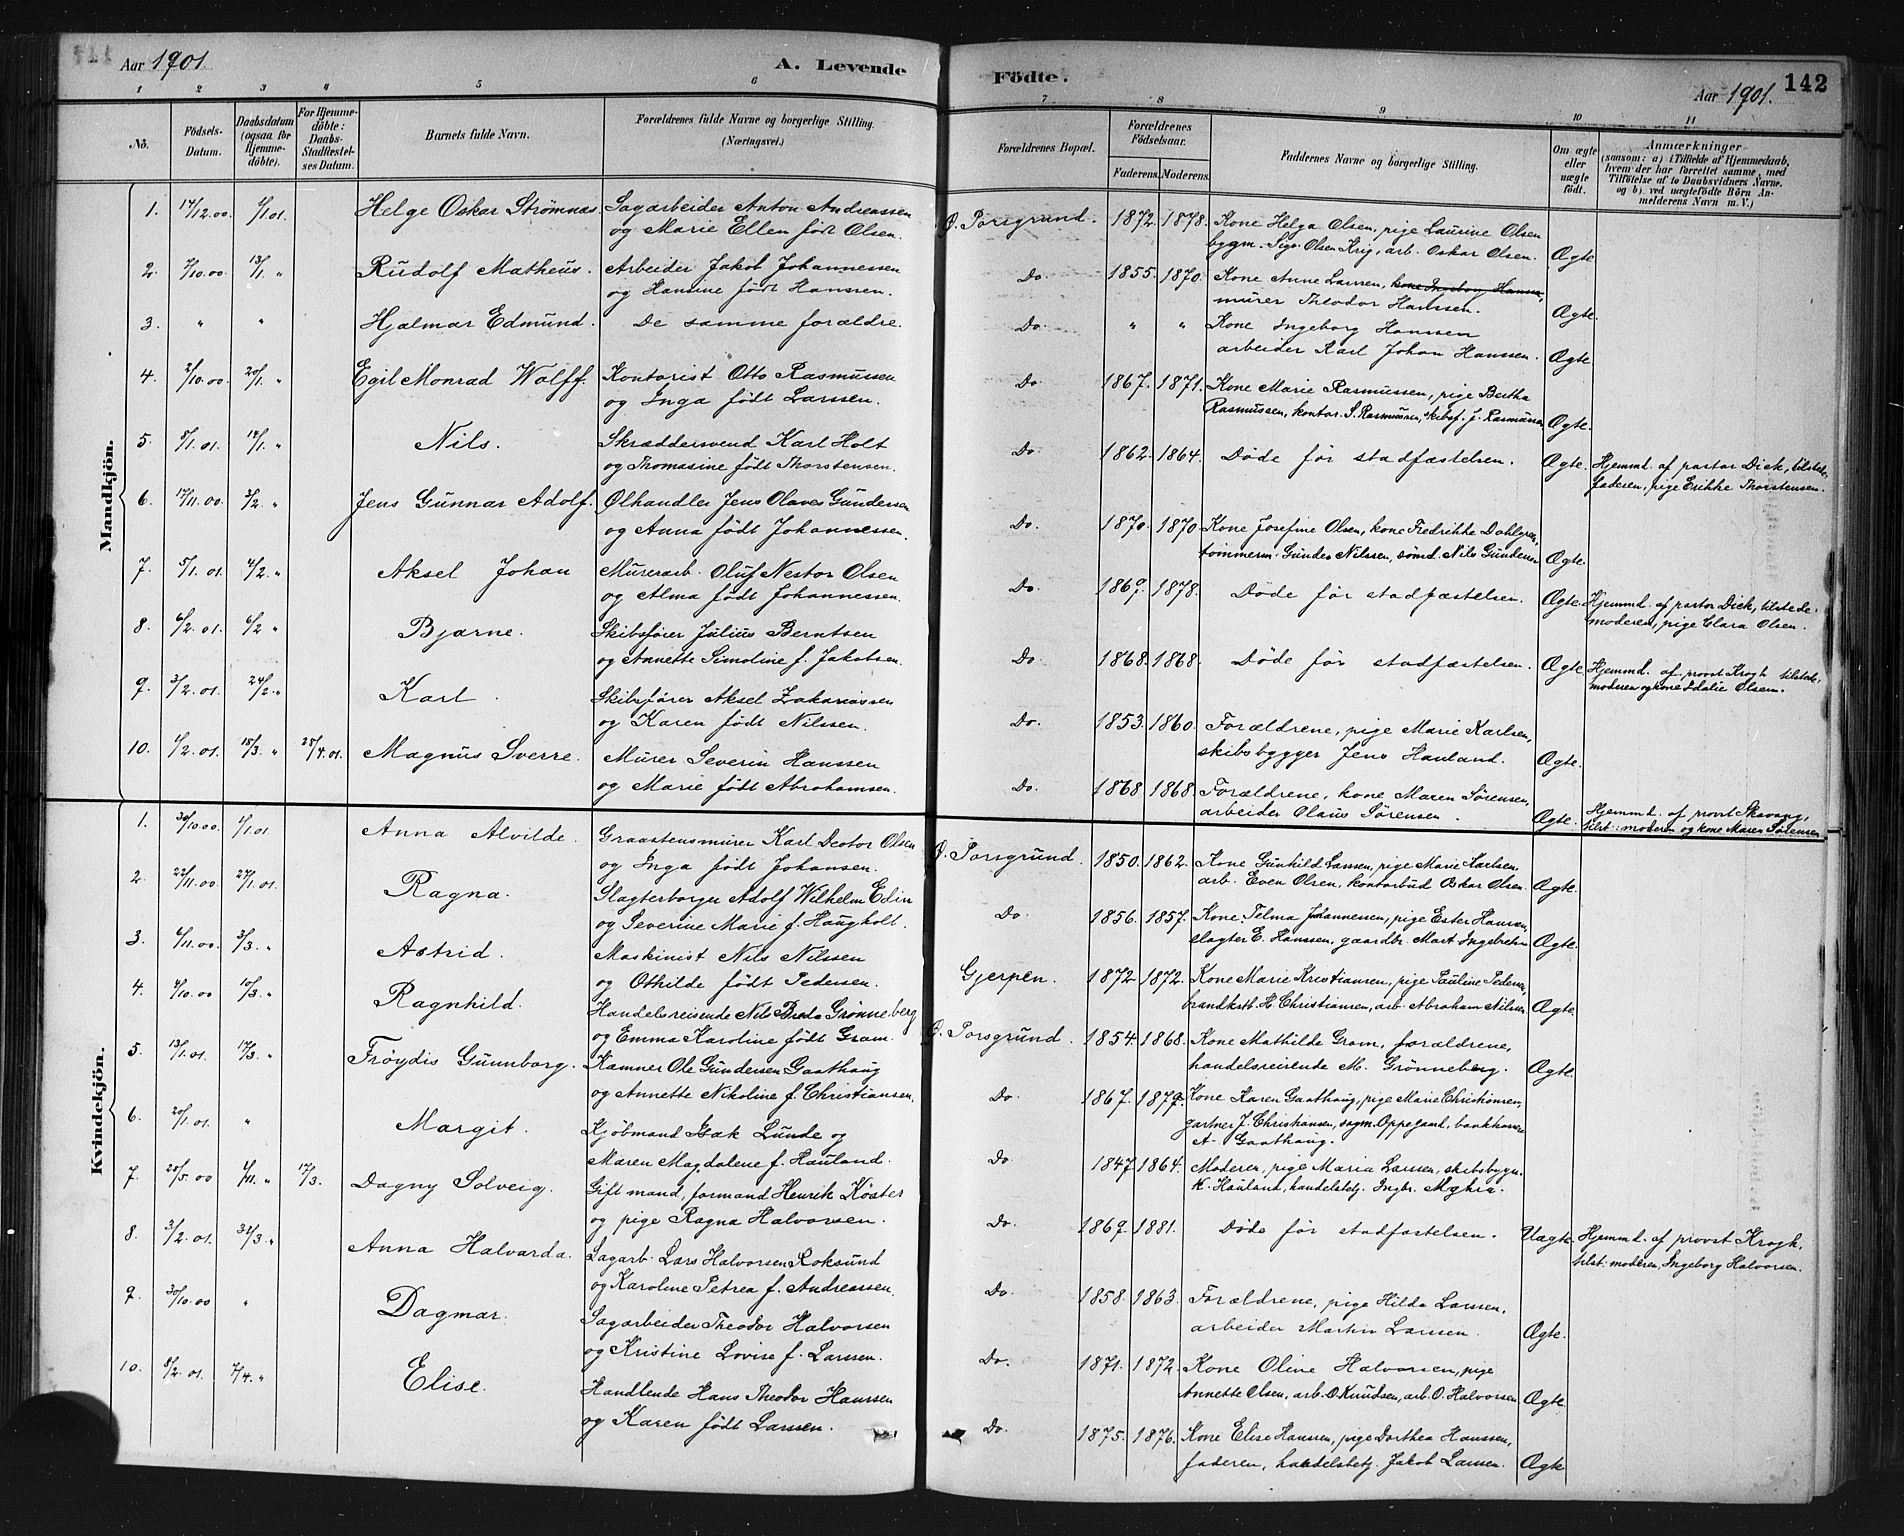 Aar 1901.
A. Levende
1 2 3 4 5 6
No.
Födsels-
Datum.
Daabsdatum
(ogsaa for
Hjemme-
döbte).
For Hjemme-
döbte:
Daabs-
Stadfæstel-
ses Datum.
Barnets fulde Navn.
Forældrenes fulde Navne og borgerlige Stilling.
(Næringsvei.)
Mandkjön.
1. 14/12.00. 6/1.01. Helge Oskar Strømnæs. Sagarbeider Anton Andreassen
og Marie Ellen født Olsen.
2. 7/10.00. 13/1. „ Rudolf Matheus. Arbeider Jakob Johannessen
og Hansine født Hanssen.
3. „ „ Hjalmar Edmund. De samme forældre.
4. 2/10.00. 20/1. „ Egil Monrad Wolff. Kontorist Otto Rasmussen
og Inga født Larssen.
5. 8/1.01. 14/1. „ Nils. Skræddersvend Karl Holt
og Thomasine født Thorstensen.
6. 17/11.00. 3/2. „ Jens Gunnar Adolf. Ølhandler Jens Olaves Gundersen
og Anna født Johannessen.
7. 5/1.01. 4/2. „ Aksel Johan Murerarb. Oluf Nestor Olsen
og Alma født Johannessen.
8. 6/2.01. 6/2 „ Bjarne. Skibsfører Julius Berntsen
og Annette Simoline f. Jakobsen.
9. 3/2.01. 24/2. „ Karl. Skibsfører Aksel Zakariassen
og Karen født Nilssen.
10. 6/2.01. 18/3. „ 28/4.01. Magnus Sverre. Murer Severin Hanssen
og Marie født Abrahamsen.
Kvindekjön.
1. 30/10.00. 6/1.01. Anna Alvilde. Graastensmurer Karl Deotor Olsen
og Inga født Johansen.
2. 22/11.00. 27/1.01. Ragna. Slagterborger Adolf Wilhelm Edin
og Severine Marie f. Haugholt.
3. 4/11.00. 3/3. „ Astrid. Maskinist Nils Nilssen
og Othilde født Pedersen.
4. 4/10.00 10/3. „ Ragnhild. Handelsreisende Nils Grønneberg
og Emma Karoline født Gram.
5. 13/1.01. 17/3. „ Frøydis Gunnborg. Kamner Ole Gundersen Gaathaug
og Annette Nikoline f. Christiansen.
6. 20/1.01. „ Margit. Kjøbmand Isak Lunde og
Maren Magdalene f. Hauland.
7. 20/5.00 4/11. „ 17/3. Dagny Solveig. Gift mand, formand Henrik Köster
og pige Ragna Halvorsen.
8. 3/2.01. 31/3. „ Anna Halvarda. Sagarb. Lars Halvorsen Roksund
og Karoline Petrea f. Andreassen.
9. 30/10.00 „ Dagmar. Sagarbeider Theodor Halvorsen
og Kristine Lovise f. Larssen.
10. 8/2.01. 7/4. „ Elise. Handlende Hans Theodor Hanssen
og Karen født Larssen.
Födte.
142
Aar 1901.
7 8 9 10 11
Forældrenes Bopæl.
Forældrenes
Födselsaar.
Faderens. Moderens.
Faddernes Navne og borgerlige Stilling.
Om ægte
eller
uægte
födt.
Anmærkninger
(saasom: a) i Tilfælde af Hjemmedaab,
hvem der har forrettet samme, med
Tilföielse af to Daabsvidners Navne.
og b) ved uægtefödte Börn An-
melderens Navn m. V.)
Ø. Porsgrund. 1872. 1878. Kone Helga Olsen, pige Laurine Olsen
bygm. Sigv. Olsen Krig, arb. Oskar Olsen. Ægte
Do. 1855. 1870. Kone Anne Larssen, kone Ingeborg Hanssen,
murer Theodor Hanssen. Ægte.
Do. „ „ Kone Ingeborg Hanssen
arbeider Karl Johan Hanssen. Ægte
Do. 1867. 1871. Kone Marie Rasmussen, pige Bertha
Rasmussen, kontor. S. Rasmussen, skibsf. J. Rasmussen Ægte.
Do. 1862. 1864. Døde før stadfæstelsen. Ægte. Hjemmd. af pastor Dick, tilstede
faderen, pige Erikke Thorstensen.
Do. 1870. 1870 Kone Josefine Olsen, kone Fredrikke Dahlgren,
tømmerm. Gunder Nilssen, sømd. Nils Gundersen Ægte.
Do. 1869. 1878. Døde før stadfæstelsen. Ægte. Hjemmd. af pastor Dick, tilstede:
moderen, pige Clara Olsen.
Do. 1868. 1868. Døde før stadfæstelsen. Ægte Hjemmd. af provst Krogh tilstede,
moderen og kone Idalie Olsen.
Do. 1853. 1860. Forældrene, pige Marie Karlsen,
skibsbygger Jens Hauland. Ægte.
Do. 1868 1868. Forældrene, kone Maren Sørensen,
arbeider Olaus Sørensen. Ægte. Hjemmd. af provst Skavang,
tilst.: moderen og kone Maren Sørensen
Ø. Porsgrund. 1850. 1862. Kone Gunhild Larssen, pige Marie Karlsen,
arb. Even Olsen, kontorbud Oskar Olsen. Ægte.
Do 1856. 1857. Kone Telma Johannessen, pige Ester Hanssen,
slagter E. Hanssen, gaardbr. Mart. Ingebretsen Ægte.
Gjerpen. 1872 1872. Kone Marie Kristiansen, pige Pauline Pedersen,
brandkst. H. Christiansen, arb. Abraham Nilsen Ægte.
Ø. Porsgrund. 1854. 1868. Kone Mathilde Gram, forældrene,
handelsreisende M. Grønneberg. Ægte.
Do. 1867. 1879. Kone Karen Gaathaug, pige Marie Christiansen,
gartner J. Christiansen, sagm. Oppegaard, bankkasserer
A. Gaathaug.
Do 1847 1864. Moderen, pige Maria Larssen, skibsbygm.
K. Hauland, handelsbetj. Ingbr.
Do. 1869. 1881. Døde før stadfæstelsen. Uægte. Hjemmd. af provst Krogh.
tilst: moderen, Ingeborg Halvorsen.
Do. 1858. 1863. Forældrene, pige Hilda Larssen,
arbeider Martin Larssen. Ægte.
Do. 1871. 1872. Kone Oline Halvorsen, pige
Annette Olsen, arb. O. Knudsen, arb. O. Halvorsen Ægte.
Do. 1875. 1876. Kone Elise Hanssen, pige Dorthea Hanssen,
faderen, handelsbetj. Jakob Larssen. Ægte